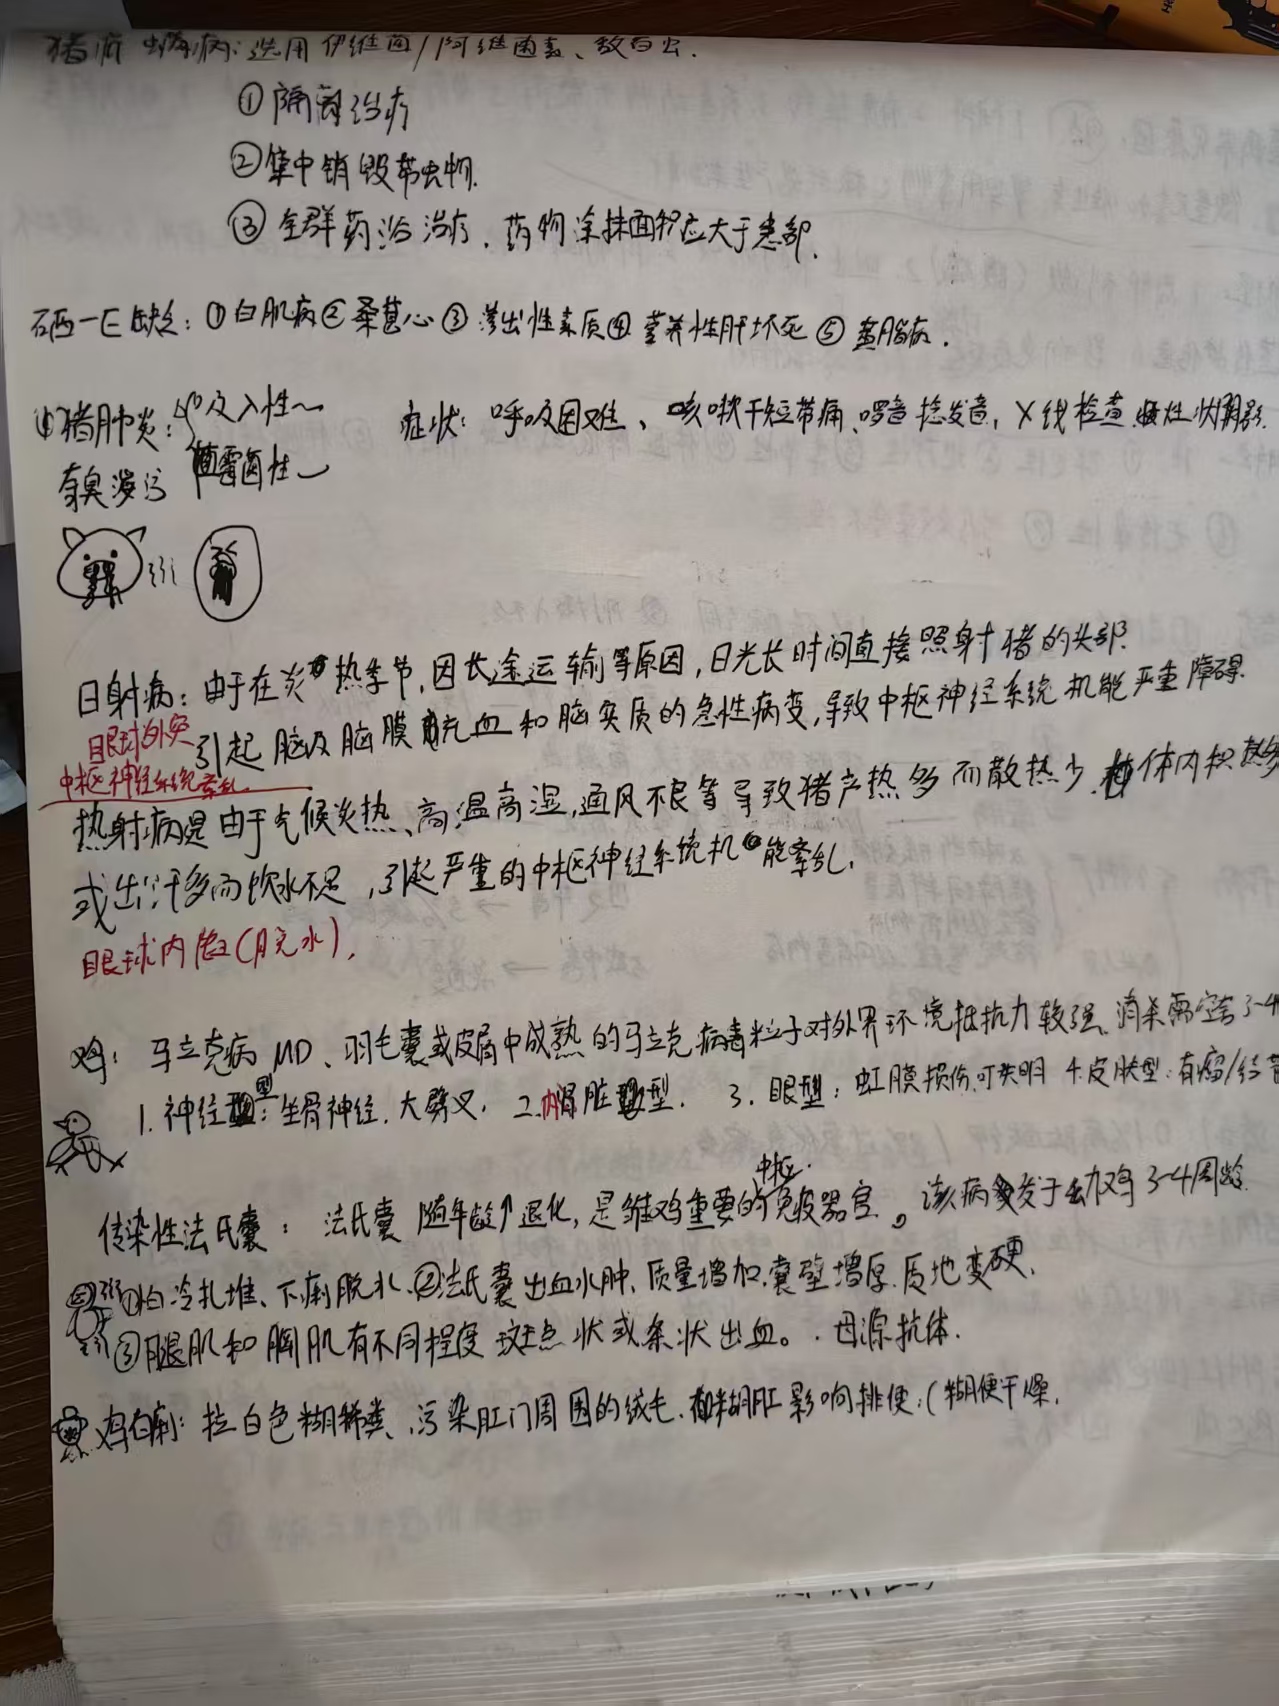 猪疥螨病：选用伊维菌/阿维菌素、敌百虫.
①隔离治疗
②集中销毁带虫物.
③全群药浴治疗、药物涂抹面积应大于患部.
硒一E缺乏：①白肌病②桑葚心③渗出性素质④营养性肝坏死⑤黄脂病.
猪肺炎：吸入性～ 症状：呼吸困难、咳嗽干短带痛、啰音捻发音，X线检查 状阴影.
霉菌性～
日射病：由于在炎热季节，因长途运输等原因，日光长时间直接照射猪的头部
引起脑及脑膜充血和脑实质的急性病变，导致中枢神经系统机能严重障碍.
眼球外突
中枢神经系统紊乱
热射病是由于气候炎热、高温高湿，通风不良等导致猪产热多而散热少，体内积热
或出汗多而饮水不足，引起严重的中枢神经系统机能紊乱.
眼球内陷(脱水).
鸡：马立克病MD、羽毛囊或皮屑中成熟的马立克病毒粒子对外界环境抵抗力较强、消杀需空舍3-4
1.神经型：坐骨神经.大劈叉. 2.内脏型. 3.眼型：虹膜损伤,可失明 4.皮肤型：有瘤/结节
传染性法氏囊：法氏囊随年龄↑退化，是雏鸡重要的中枢免疫器官。该病多发于幼鸡3-4周龄.
①怕冷扎堆、下痢脱水.②法氏囊出血水肿、质量增加.囊壁增厚.质地变硬.
③腿肌和胸肌有不同程度斑点状或条状出血。.母源抗体.
鸡白痢：拉白色糊稀粪、污染肛门周围的绒毛.糊肛影响排便.(糊便干燥.